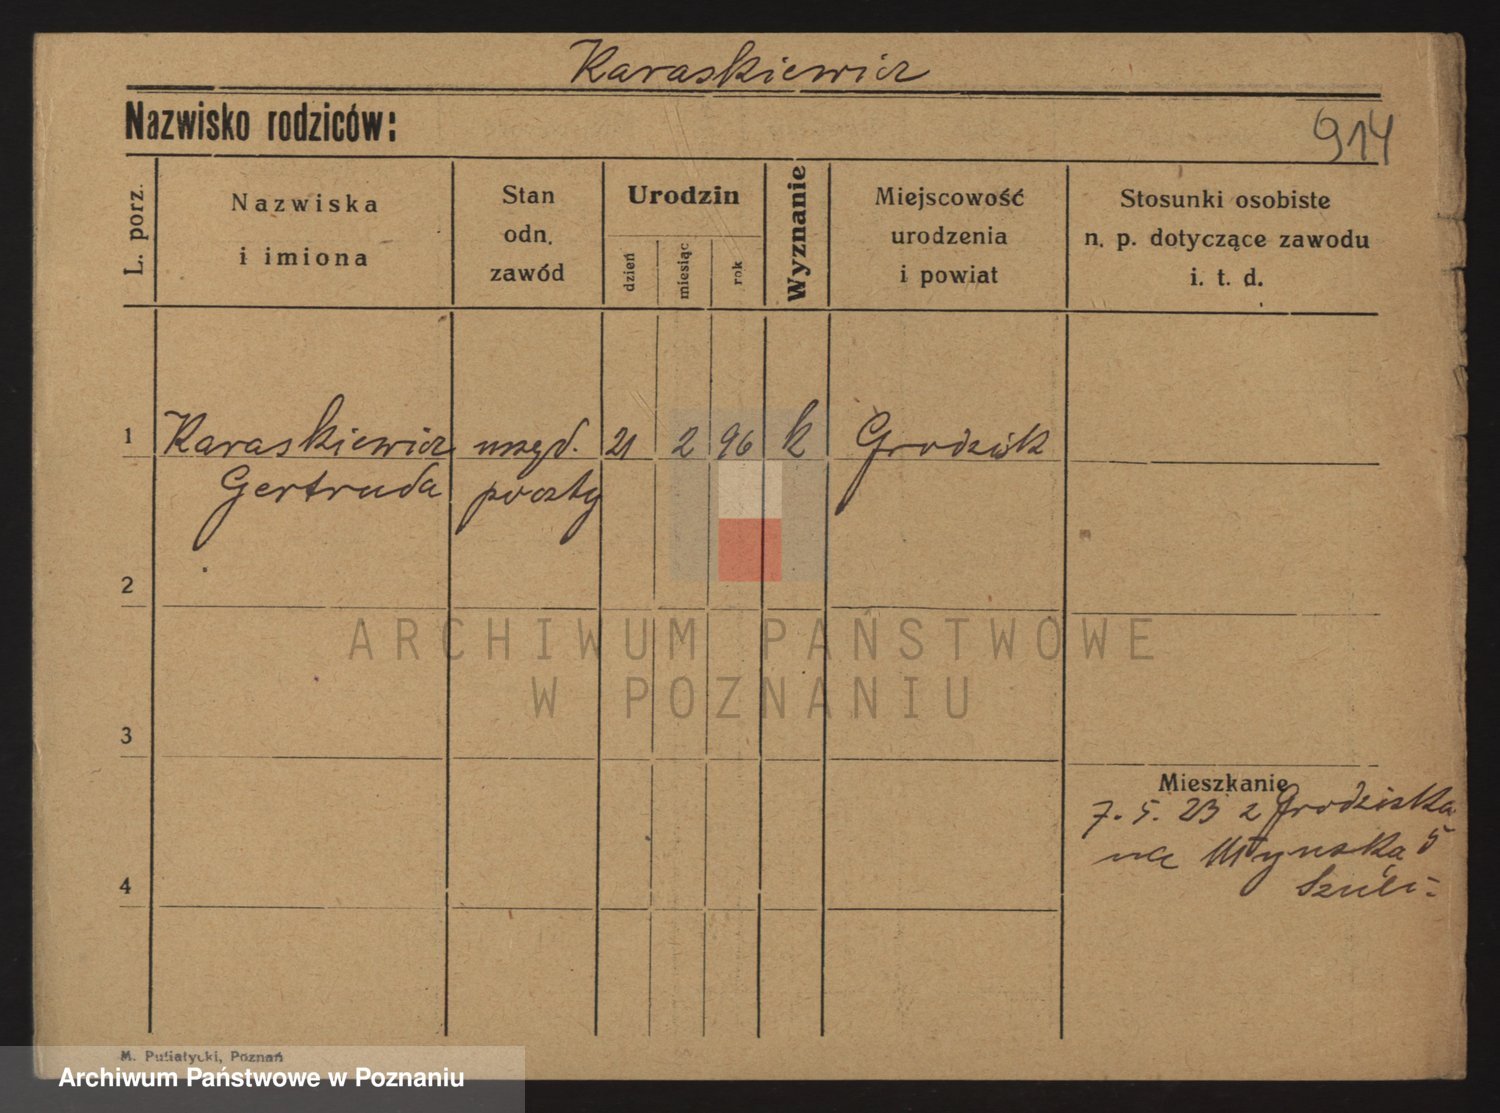 Karaskiewicz
Nazwisko rodziców:
914
L. porz.
Nazwiska
i imiona
Stan
odn.
zawód
Urodzin
dzień
miesiąc
rok
Wyznanie
Miejscowość
urodzenia
i powiat
Stosunki osobiste
n. p. dotyczące zawodu
i. t. d.
1 Karaskiewicz urzęd. 21 2 96 k Grodzisk
Gertruda poczty
2
ARCHIWUM PAŃSTWOWE
W POZNANIU
3
Mieszkanie
7. 5. 23 z Grodziska
na Młyńska 5
4
M. Putiatycki, Poznań
Archiwum Państwowe w Poznaniu